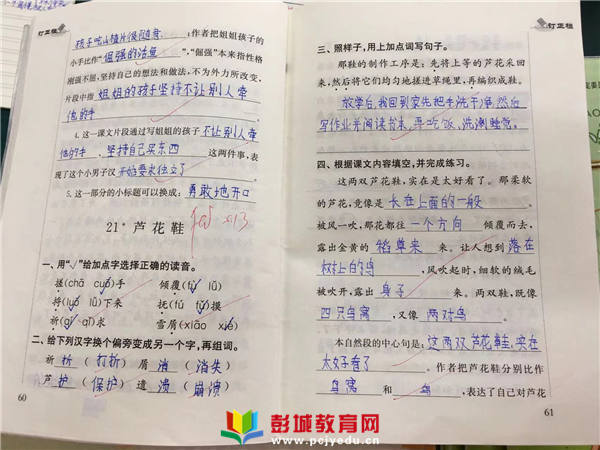 订正栏
孩子吃山楂片很随意 ；作者把姐姐孩子的
小手比作“倔强的活鱼”，“倔强”本来指性格
刚强不屈，坚持自己的想法和做法，不为外力所改变，
片段中指 姐姐的孩子坚持不让别人牵
他的手
4. 这一课文片段通过写姐姐的孩子 不让别人牵
他的手 、 坚持自己买东西 这两件事，表
现了这个小男子汉 开始要求独立了
5. 这一部分的小标题可以换成： 勇敢地开口
21* 芦花鞋
一、用“√”给加点字选择正确的读音。
搓(chā cuō)手 倾覆(fù lǚ)
捋(luō lǚ)下来 抚(fú fǔ)摸
祈(qí qǐ)求 雪屑(xiāo xiè)
二、给下列汉字换个偏旁变成另一个字，再组词。
祈 折 ( 打折 ) 屑 消 ( 消失 )
芦 护 ( 保护 ) 遗 溃 ( 崩溃 )
60
订正栏
三、照样子，用上加点词写句子。
那鞋的制作工序是：先将上等的芦花采回
来，然后将它们均匀地搓进草绳里，再编织成鞋。
放学后，我回到家先把手洗干净，然后
写作业并阅读书本，再吃饭、洗漱睡觉。
四、根据课文内容填空，并完成练习。
这两双芦花鞋，实在是太好看了。那柔软
的芦花，竟像是 长在上面的一般 。
被风一吹，那花都往 一个方向 倾覆而去，
露出金黄的 稻草来 来。让人想到 落在
树上的鸟 ，风吹起时，细软的绒毛
被吹开，露出 身子 来。两双鞋，既像
四只鸟窝 ，又像 两对鸟 。
本自然段的中心句是： 这两双芦花鞋，实在
太好看了 。作者把芦花鞋分别比作
鸟窝 和 鸟 ，表达了自己对芦花
61
彭城教育网
www.pcjyedu.cn